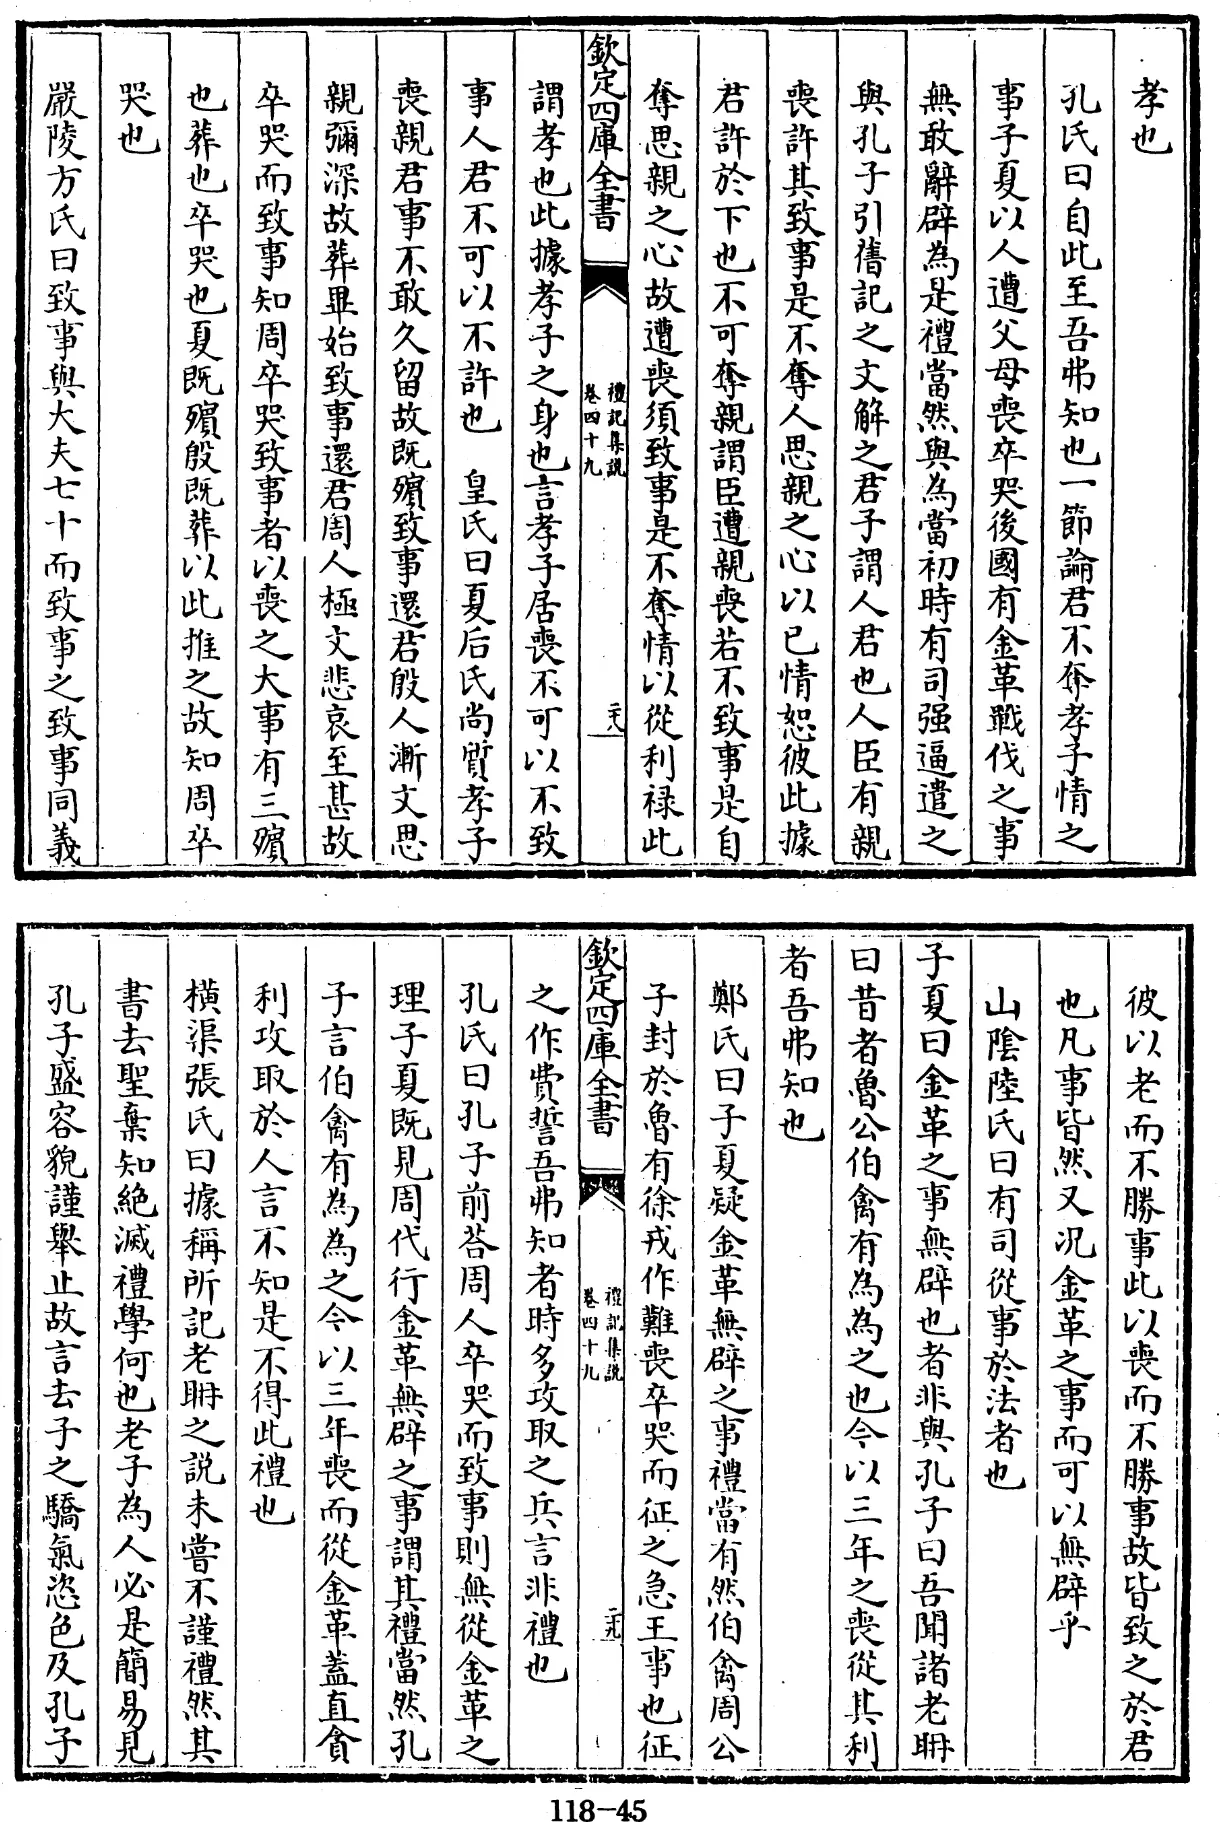 孝也
孔氏曰自此至吾弗知也一節論君不奪孝子情之
事子夏以人遭父母喪卒哭後國有金革戰伐之事
無敢辭辟為是禮當然與為當初時有司强逼遣之
與孔子引舊記之文解之君子謂人君也人臣有親
喪許其致事是不奪人思親之心以已情恕彼此據
君許於下也不可奪親謂臣遭親喪若不致事是自
奪思親之心故遭喪須致事是不奪情以從利禄此
欽定四庫全書
禮記集說
卷四十九
二十八
謂孝也此據孝子之身也言孝子居喪不可以不致
事人君不可以不許也 皇氏曰夏后氏尚質孝子
喪親君事不敢久留故既殯致事還君殷人漸文思
親彌深故葬畢始致事還君周人極文悲哀至甚故
卒哭而致事知周卒哭致事者以喪之大事有三殯
也葬也卒哭也夏既殯殷既葬以此推之故知周卒
哭也
嚴陵方氏曰致事與大夫七十而致事之致事同義
彼以老而不勝事此以喪而不勝事故皆致之於君
也凡事皆然又况金革之事而可以無辟乎
山陰陸氏曰有司從事於法者也
子夏曰金革之事無辟也者非與孔子曰吾聞諸老耼
曰昔者魯公伯禽有為為之也今以三年之喪從其利
者吾弗知也
鄭氏曰子夏疑金革無辟之事禮當有然伯禽周公
子封於魯有徐戎作難喪卒哭而征之急王事也征
欽定四庫全書
禮記集說
卷四十九
二十九
之作費誓吾弗知者時多攻取之兵言非禮也
孔氏曰孔子前荅周人卒哭而致事則無從金革之
理子夏既見周代行金革無辟之事謂其禮當然孔
子言伯禽有為為之今以三年喪而從金革蓋直貪
利攻取於人言不知是不得此禮也
橫渠張氏曰據稱所記老耼之說未嘗不謹禮然其
書去聖棄知絶滅禮學何也老子為人必是簡易見
孔子盛容貌謹舉止故言去子之驕氣恣色及孔子
118-45